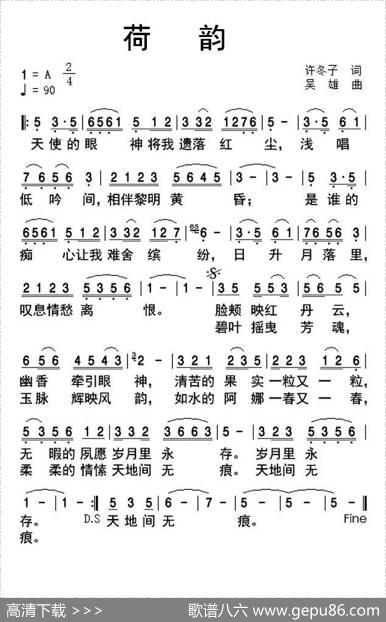 荷 韵
1 = A 2/4
♩ = 90
许冬子 词
吴 雄 曲
5 3·5 6561 5 1 2 3 32 1276 5 - 3·5 6 1
天使的眼 神将我遗落 红 尘，浅 唱
7 6 5 6 3 123 2123 5645 3 - 3· 5
低 吟 间，相伴黎明 黄 昏； 是 谁的
6561 5 1 2 3 32 1 2 7 6 - 3·5 6 1 7656 3
痴 心让我 难舍 缤 纷，日 升月 落里，
2123 5356 1 - 1 - 3 5 5 5 3 5 1 5
叹息情愁 离 恨。 脸颊 映红 丹 云，
碧叶 摇曳 芳 魂，
6 5 6 4543 2 - 1 2 3 0 2 1 2 2 3 1 2 6
幽香 牵引眼 神，清苦的 果 实 一粒又 一 粒，
玉脉 辉映风 韵，如水的 阿 娜 一春又 一 春，
5 356 5 3 2 2 3 2 3663 5 - 223 5356
无 暇的 夙愿 岁月里 永 存。岁月里 永
柔 柔的 情愫 天地间 无 痕。天地间 无
1 - 1 - 5 3 5 5356 1 - 1 -
存。 D.S 天地间 无 痕。 Fine
痕。
高清下载 >>>
歌谱八六 www.gepu86.com